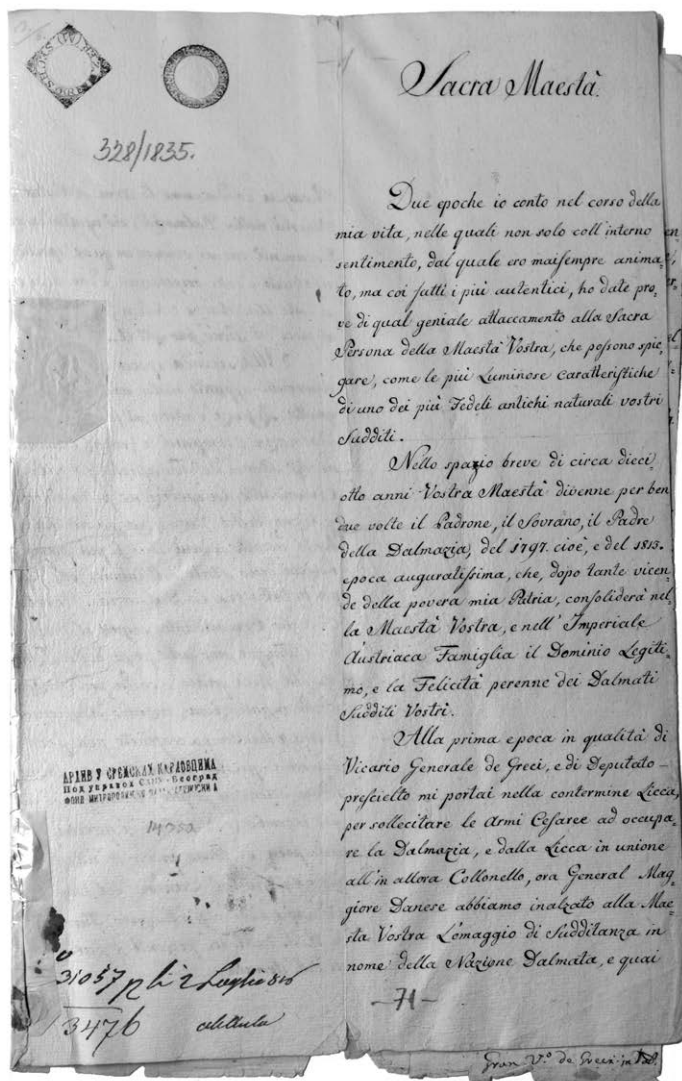 328/1835.
Sacra Maestà.
Due epoche io conto nel corso della
mia vita, nelle quali non solo coll'interno
sentimento, dal quale ero maisempre anima=
to, ma coi fatti i più autentici, ho date pro=
ve di qual geniale attaccamento alla Sacra
Persona della Maestà Vostra, che possono spie=
gare, come le più Luminose Caratteristiche
di uno dei più Fedeli antichi naturali vostri
Sudditi.
Nello spazio breve di circa dieci
otto anni Vostra Maestà divenne per ben
due volte il Padrone, il Sovrano, il Padre
della Dalmazia, del 1797. cioè, e del 1813.
epoca auguratissima, che, dopo tante vicen=
de della povera mia Patria, consoliderà nel=
la Maestà Vostra, e nell'Imperiale
Austriaca Famiglia il Dominio Legiti=
mo, e la Felicità perenne dei Dalmati
Sudditi Vostri.
Alla prima epoca in qualità di
Vicario Generale de Greci, e di Deputato –
presscielto mi portai nella contermine Licca,
per sollecitare le Armi Cesaree ad occupa=
re la Dalmazia, e dalla Licca in unione
all'in allora Collonello, ora General Mag=
giore Danese abbiamo inalzato alla Mae=
stà Vostra L'omaggio di Sudditanza in
nome della Nazione Dalmata, e quai
–71–
АРХИВ У СРЕМСКИМ КАРЛОВЦИМА
Под управом Београд
ФОНД
31057
2 Luglio
3476
Gran V.o de Greci in